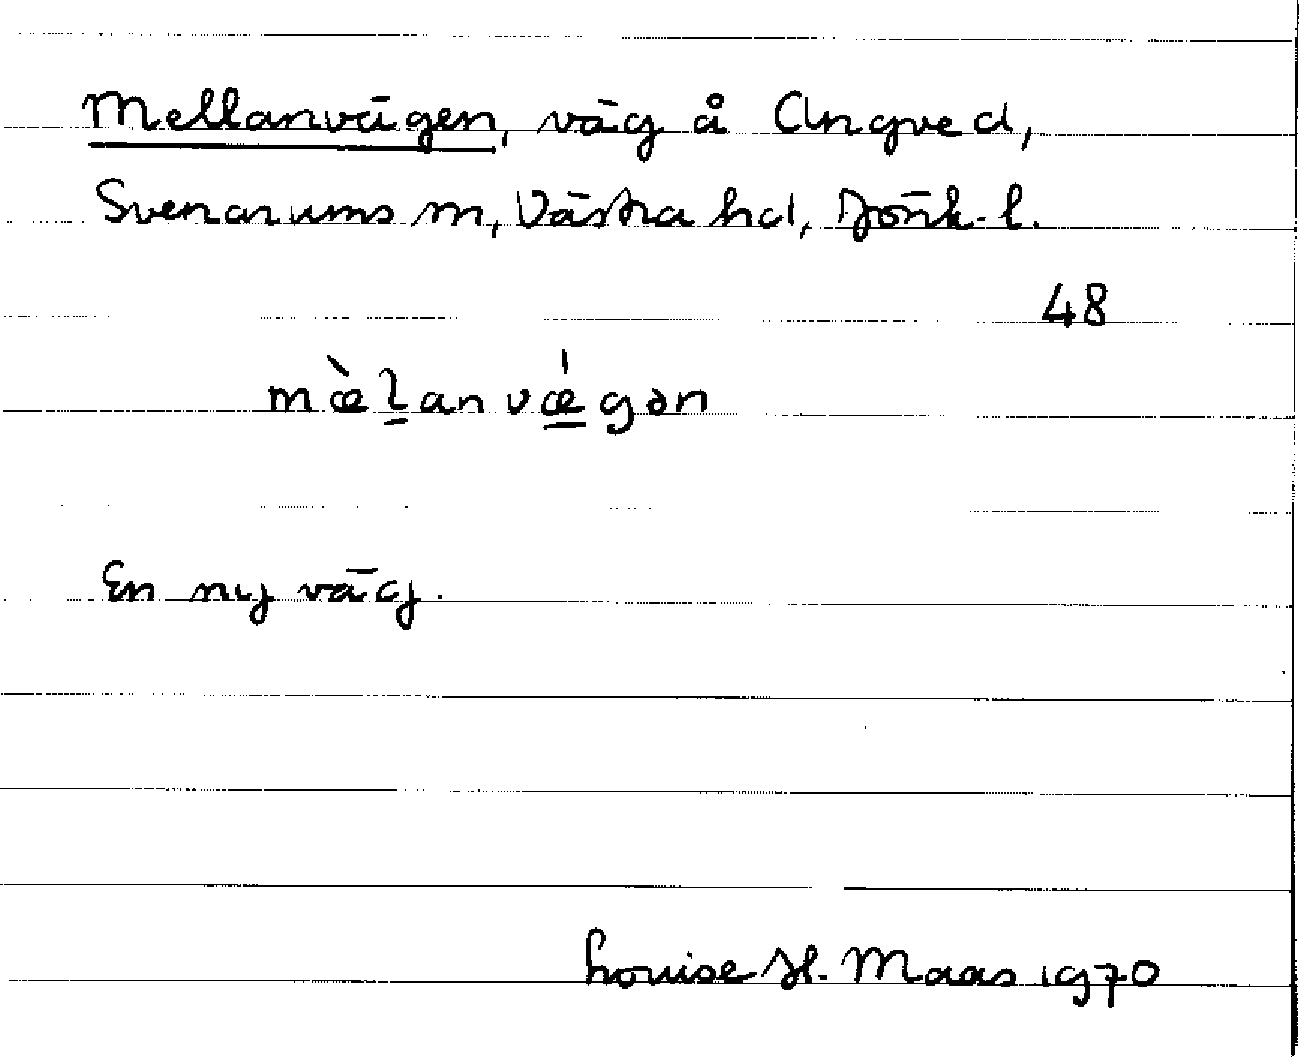 Mellanvägen, väg å Angved,
Svenarums sn, Västra hd, Jönk. l.
48
mæ̀l̲anvǽ̲gən
En ny väg.
Louise H. Maas 1970